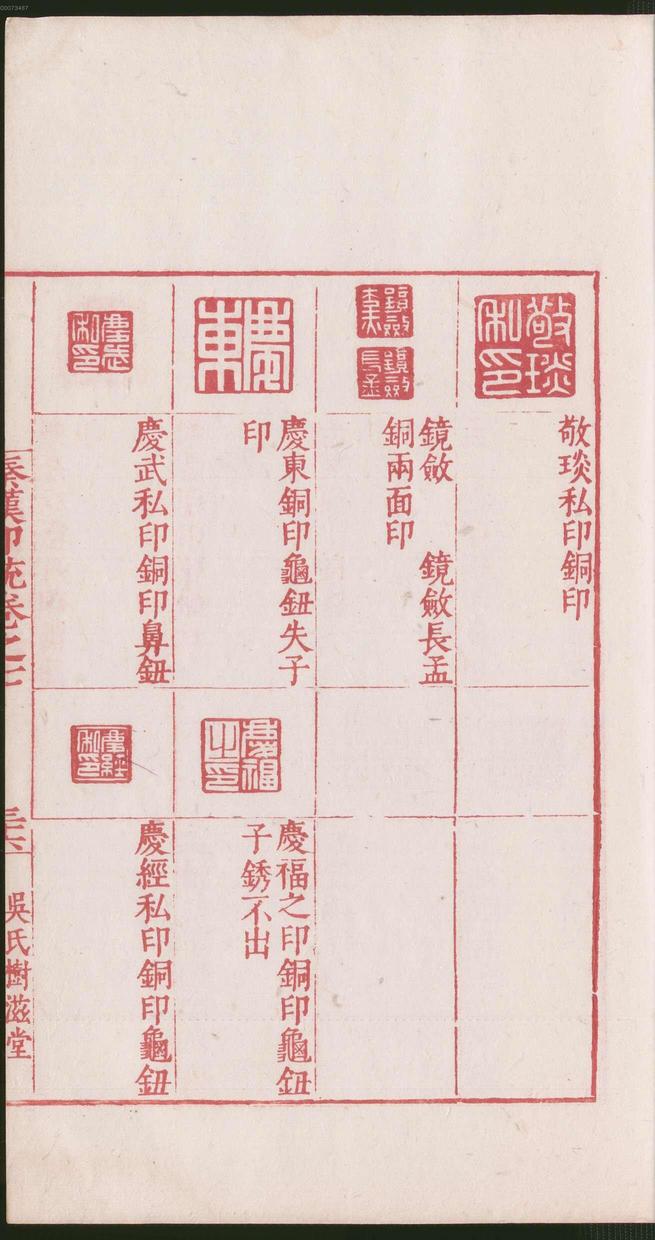 00073487
敬琰私印
敬琰私印銅印
鏡斂長孟
鏡斂　鏡斂長孟
銅兩面印
慶東
慶東銅印龜鈕失子
印
慶福之印
慶福之印銅印龜鈕
子銹不出
慶武私印
慶武私印銅印鼻鈕
慶經私印
慶經私印銅印龜鈕
秦漢印統卷之七
三六
吳氏樹滋堂